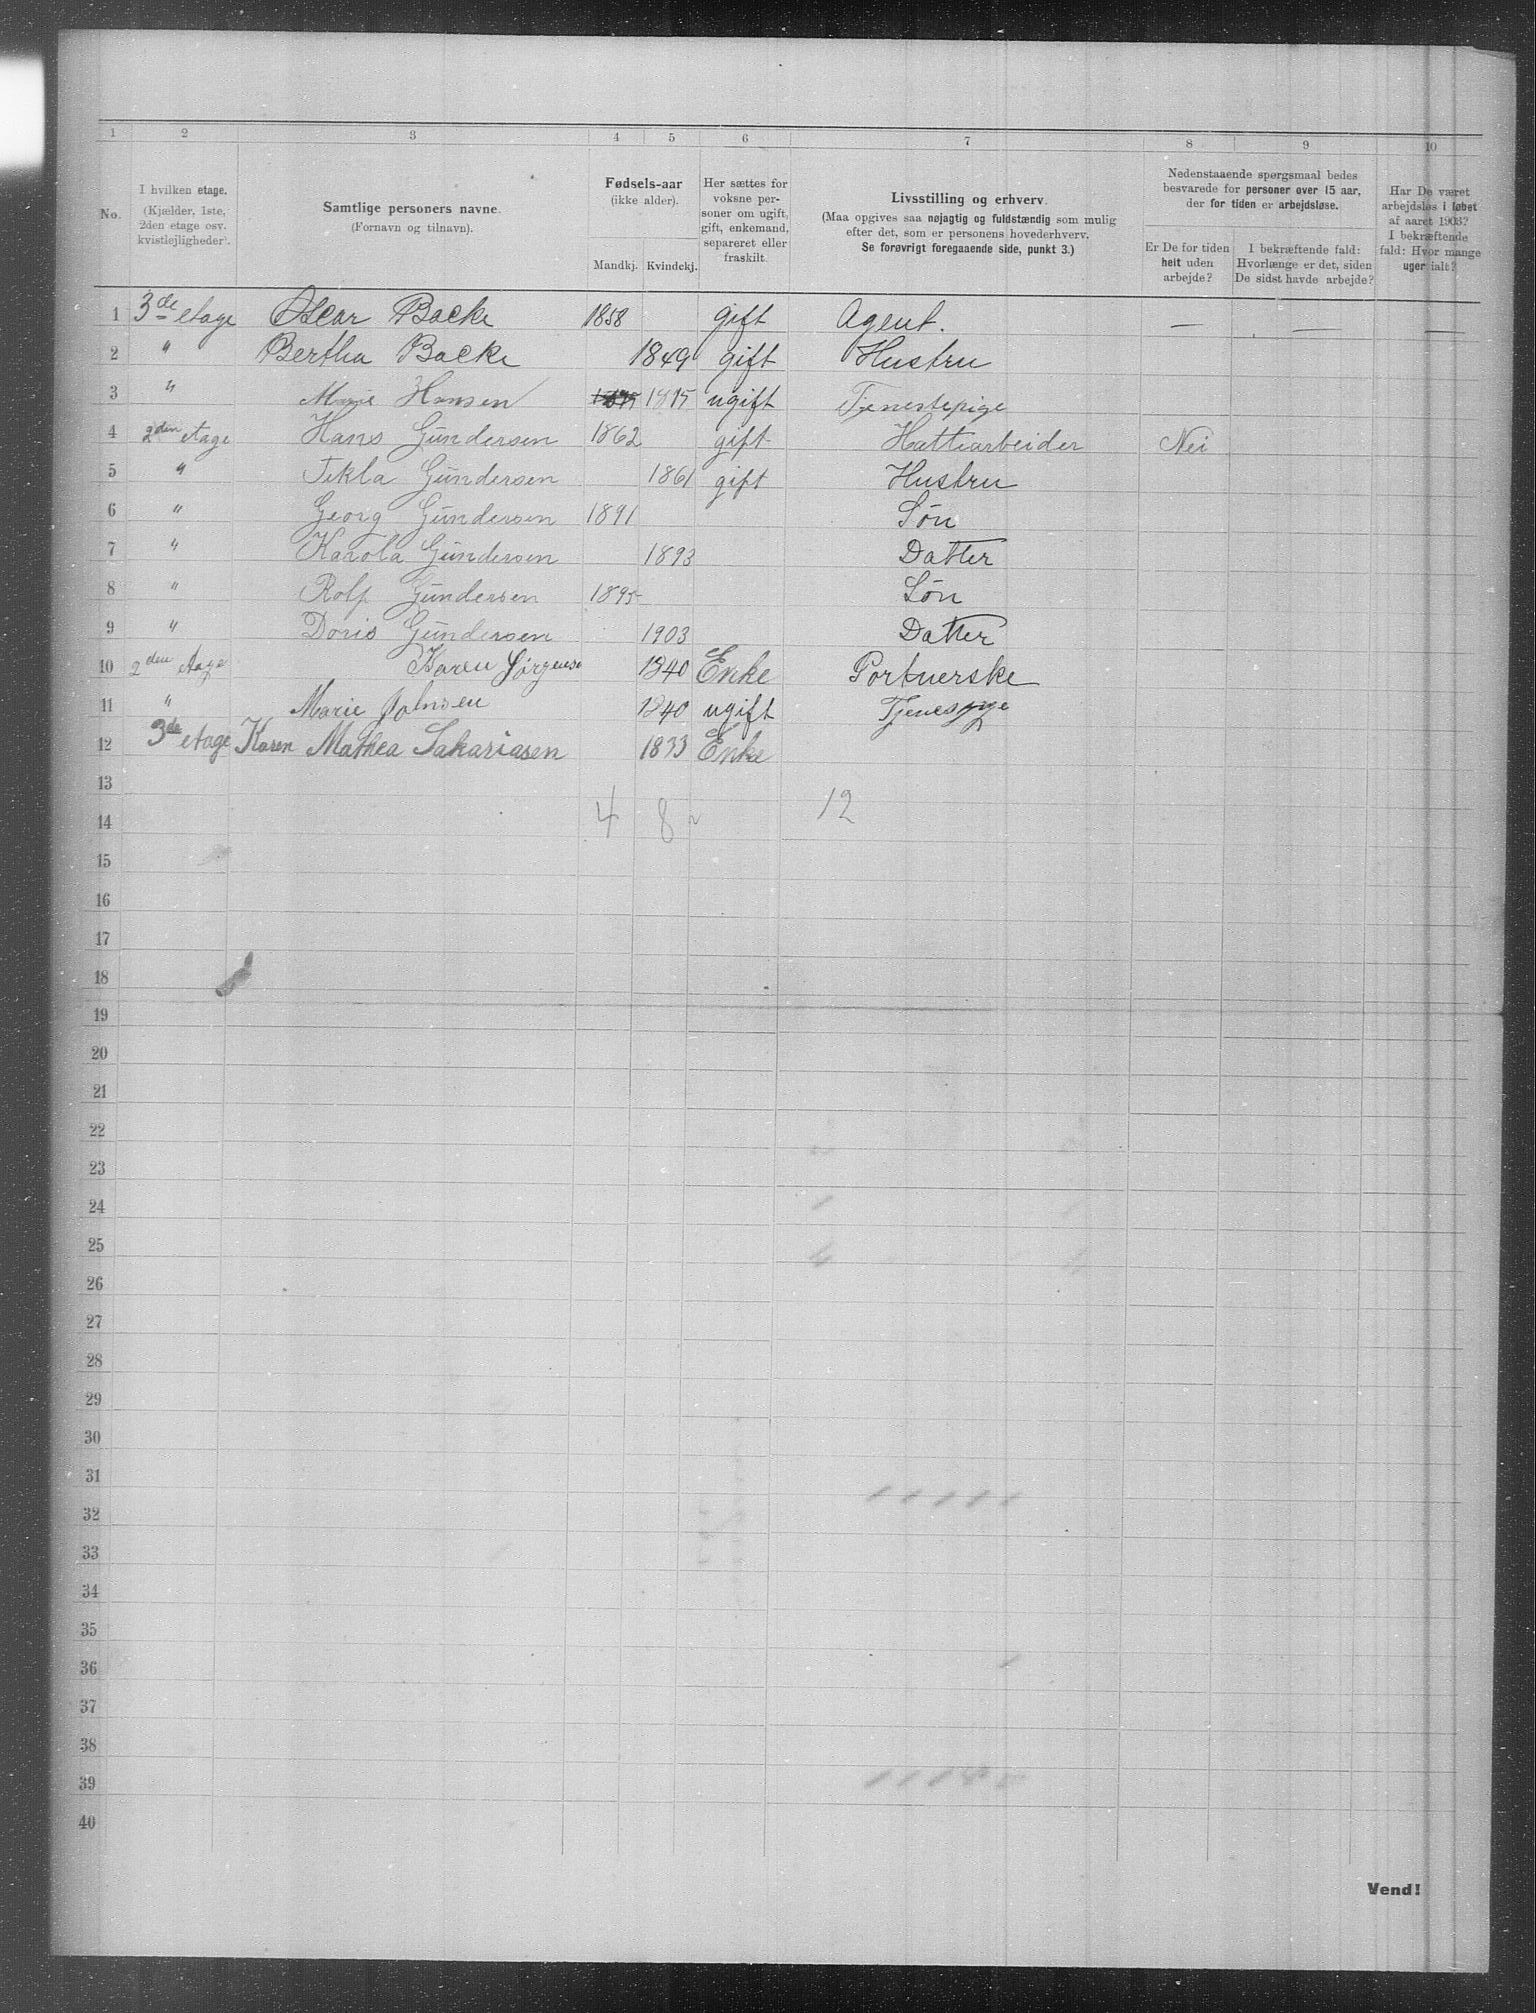 1 2 3 4 5 6 7 8 9 10
No.
I hvilken etage.
(Kjælder, 1ste,
2den etage osv.
kvistlejligheder).
Samtlige personers navne.
(Fornavn og tilnavn).
Fødsels-aar
(ikke alder).
Mandkj. Kvindekj.
Her sættes for
voksne per-
soner om ugift,
gift, enkemand,
separeret eller
fraskilt.
Livsstilling og erhverv.
(Maa opgives saa nøjagtig og fuldstændig som mulig
efter det, som er personens hovederhverv.
Se forøvrigt foregaaende side, punkt 3.)
Nedenstaaende spørgsmaal bedes
besvarede for personer over 15 aar,
der for tiden er arbejdsløse.
Er De for tiden
helt uden
arbejde?
I bekræftende fald:
Hvorlænge er det, siden
De sidst havde arbejde?
Har De været
arbejdsløs i løbet
af aaret 1903?
I bekræftende
fald: Hvor mange
uger ialt?
1 3de etage Oscar Backe 1858 gift Agent. — — —
2 " Bertha Backe 1849 gift Hustru
3 " Marie Hansen 1875 1875 ugift Tjenestepige
4 2den etage Hans Gundersen 1862 gift Hattearbeider Nei
5 " Tekla Gundersen 1861 gift Hustru
6 " Georg Gundersen 1891 Søn
7 " Karola Gundersen 1893 Datter
8 " Rolf Gundersen 1895 Søn
9 " Doris Gundersen 1903 Datter
10 2den etage Karen Jørgense 1840 Enke Portnerske
11 " Marie Johnsen 1840 ugift
12 3de etage Karen Mathea Sakariasen 1833 Enke
13
14 4 8 12
15
16
17
18
19
20
21
22
23
24
25
26
27
28
29
30
31
32
33
34
35
36
37
38
39
40
Vend!